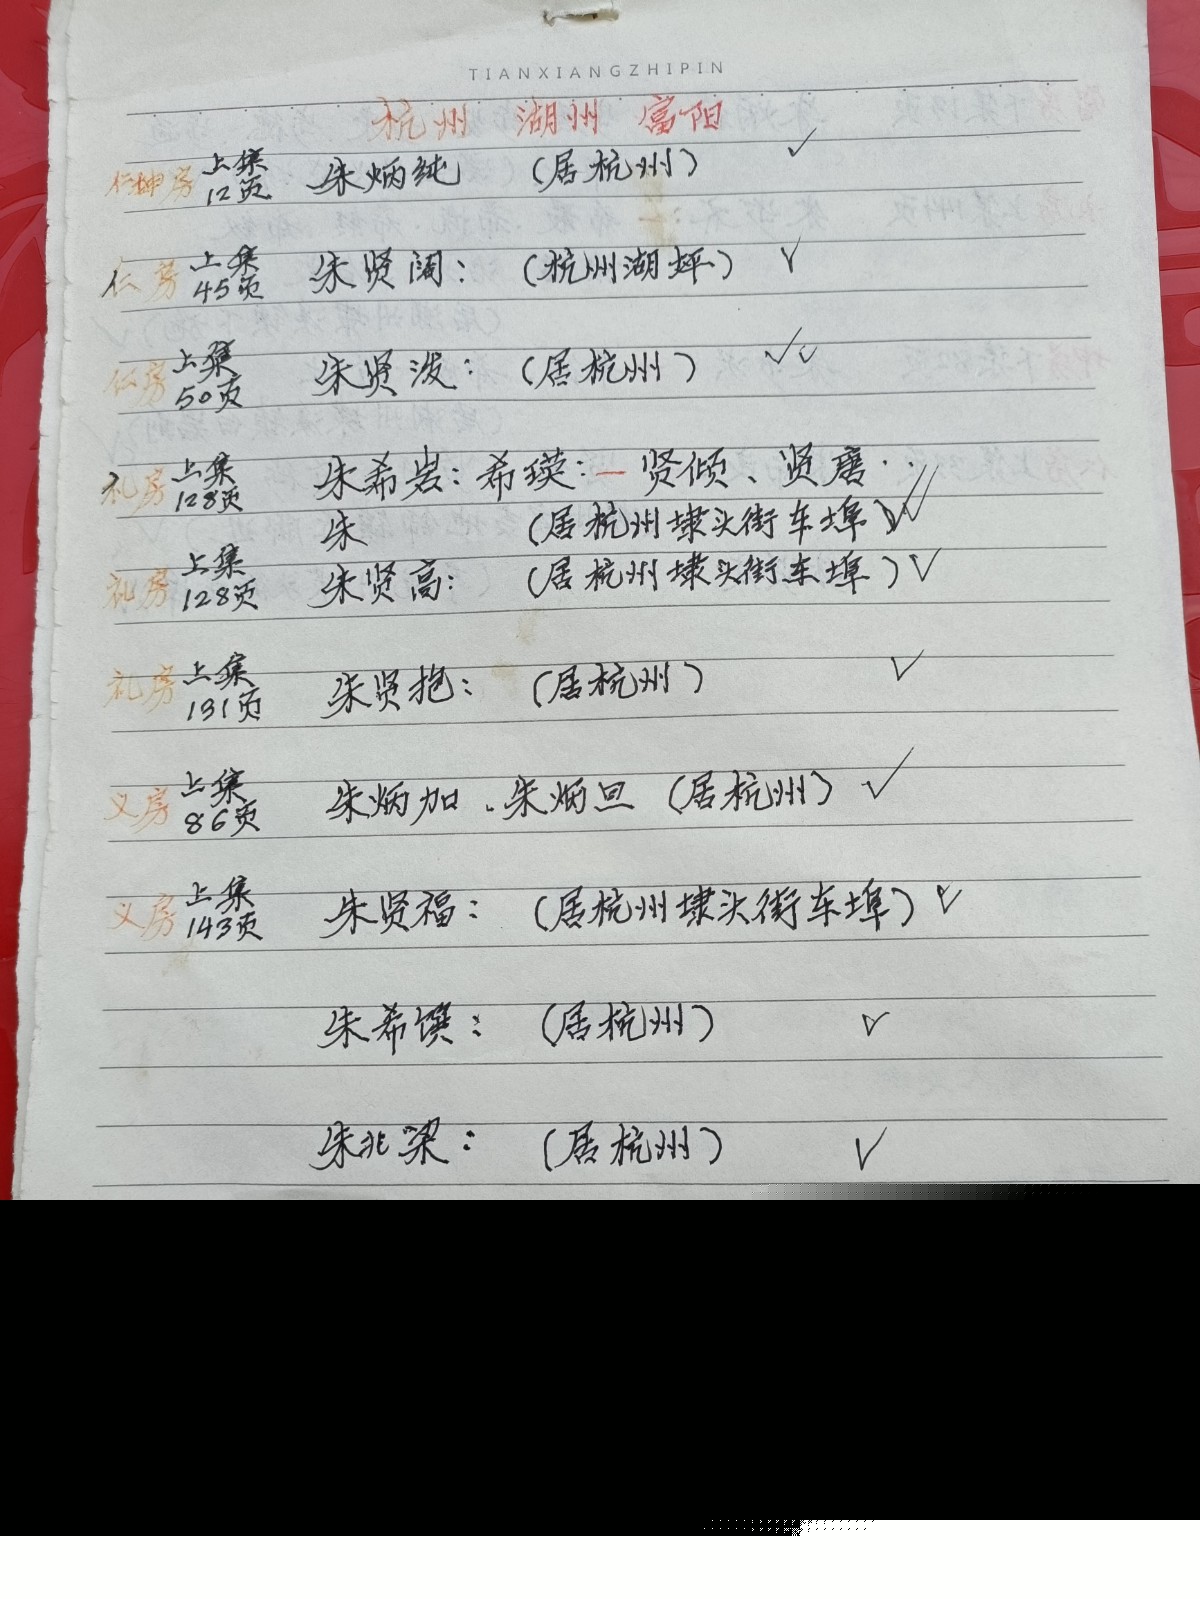 TIANXIANGZHIPIN
杭州 湖州 富阳
仁坤房 上集12页 朱炳纯 (居杭州) ✓
仁房 上集45页 朱贤阔: (杭州湖坪) ✓
仁房 上集50页 朱贤泼: (居杭州) ✓✓
礼房 上集128页 朱希岩: 希瑛: — 贤倾、贤唐..
朱 (居杭州埭头街车埠) ✓✓
礼房 上集128页 朱贤高: (居杭州埭头街车埠) ✓
礼房 上集131页 朱贤抱: (居杭州) ✓
义房 上集86页 朱炳加.朱炳旦 (居杭州) ✓
义房 上集143页 朱贤福: (居杭州埭头街车埠) ✓
朱希馔: (居杭州) ✓
朱兆梁: (居杭州) ✓